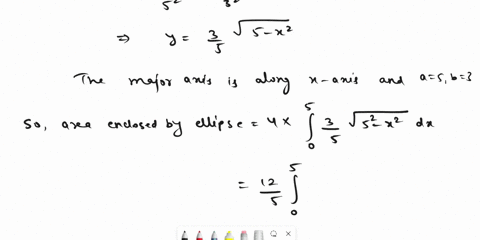 5² 3²
⇒ y = 3/5 √(5-x²)
The major axis is along x-axis and a=5, b=3
So, area enclosed by ellipse = 4 × ∫₀⁵ 3/5 √(5²-x²) dx
= 12/5 ∫₀⁵